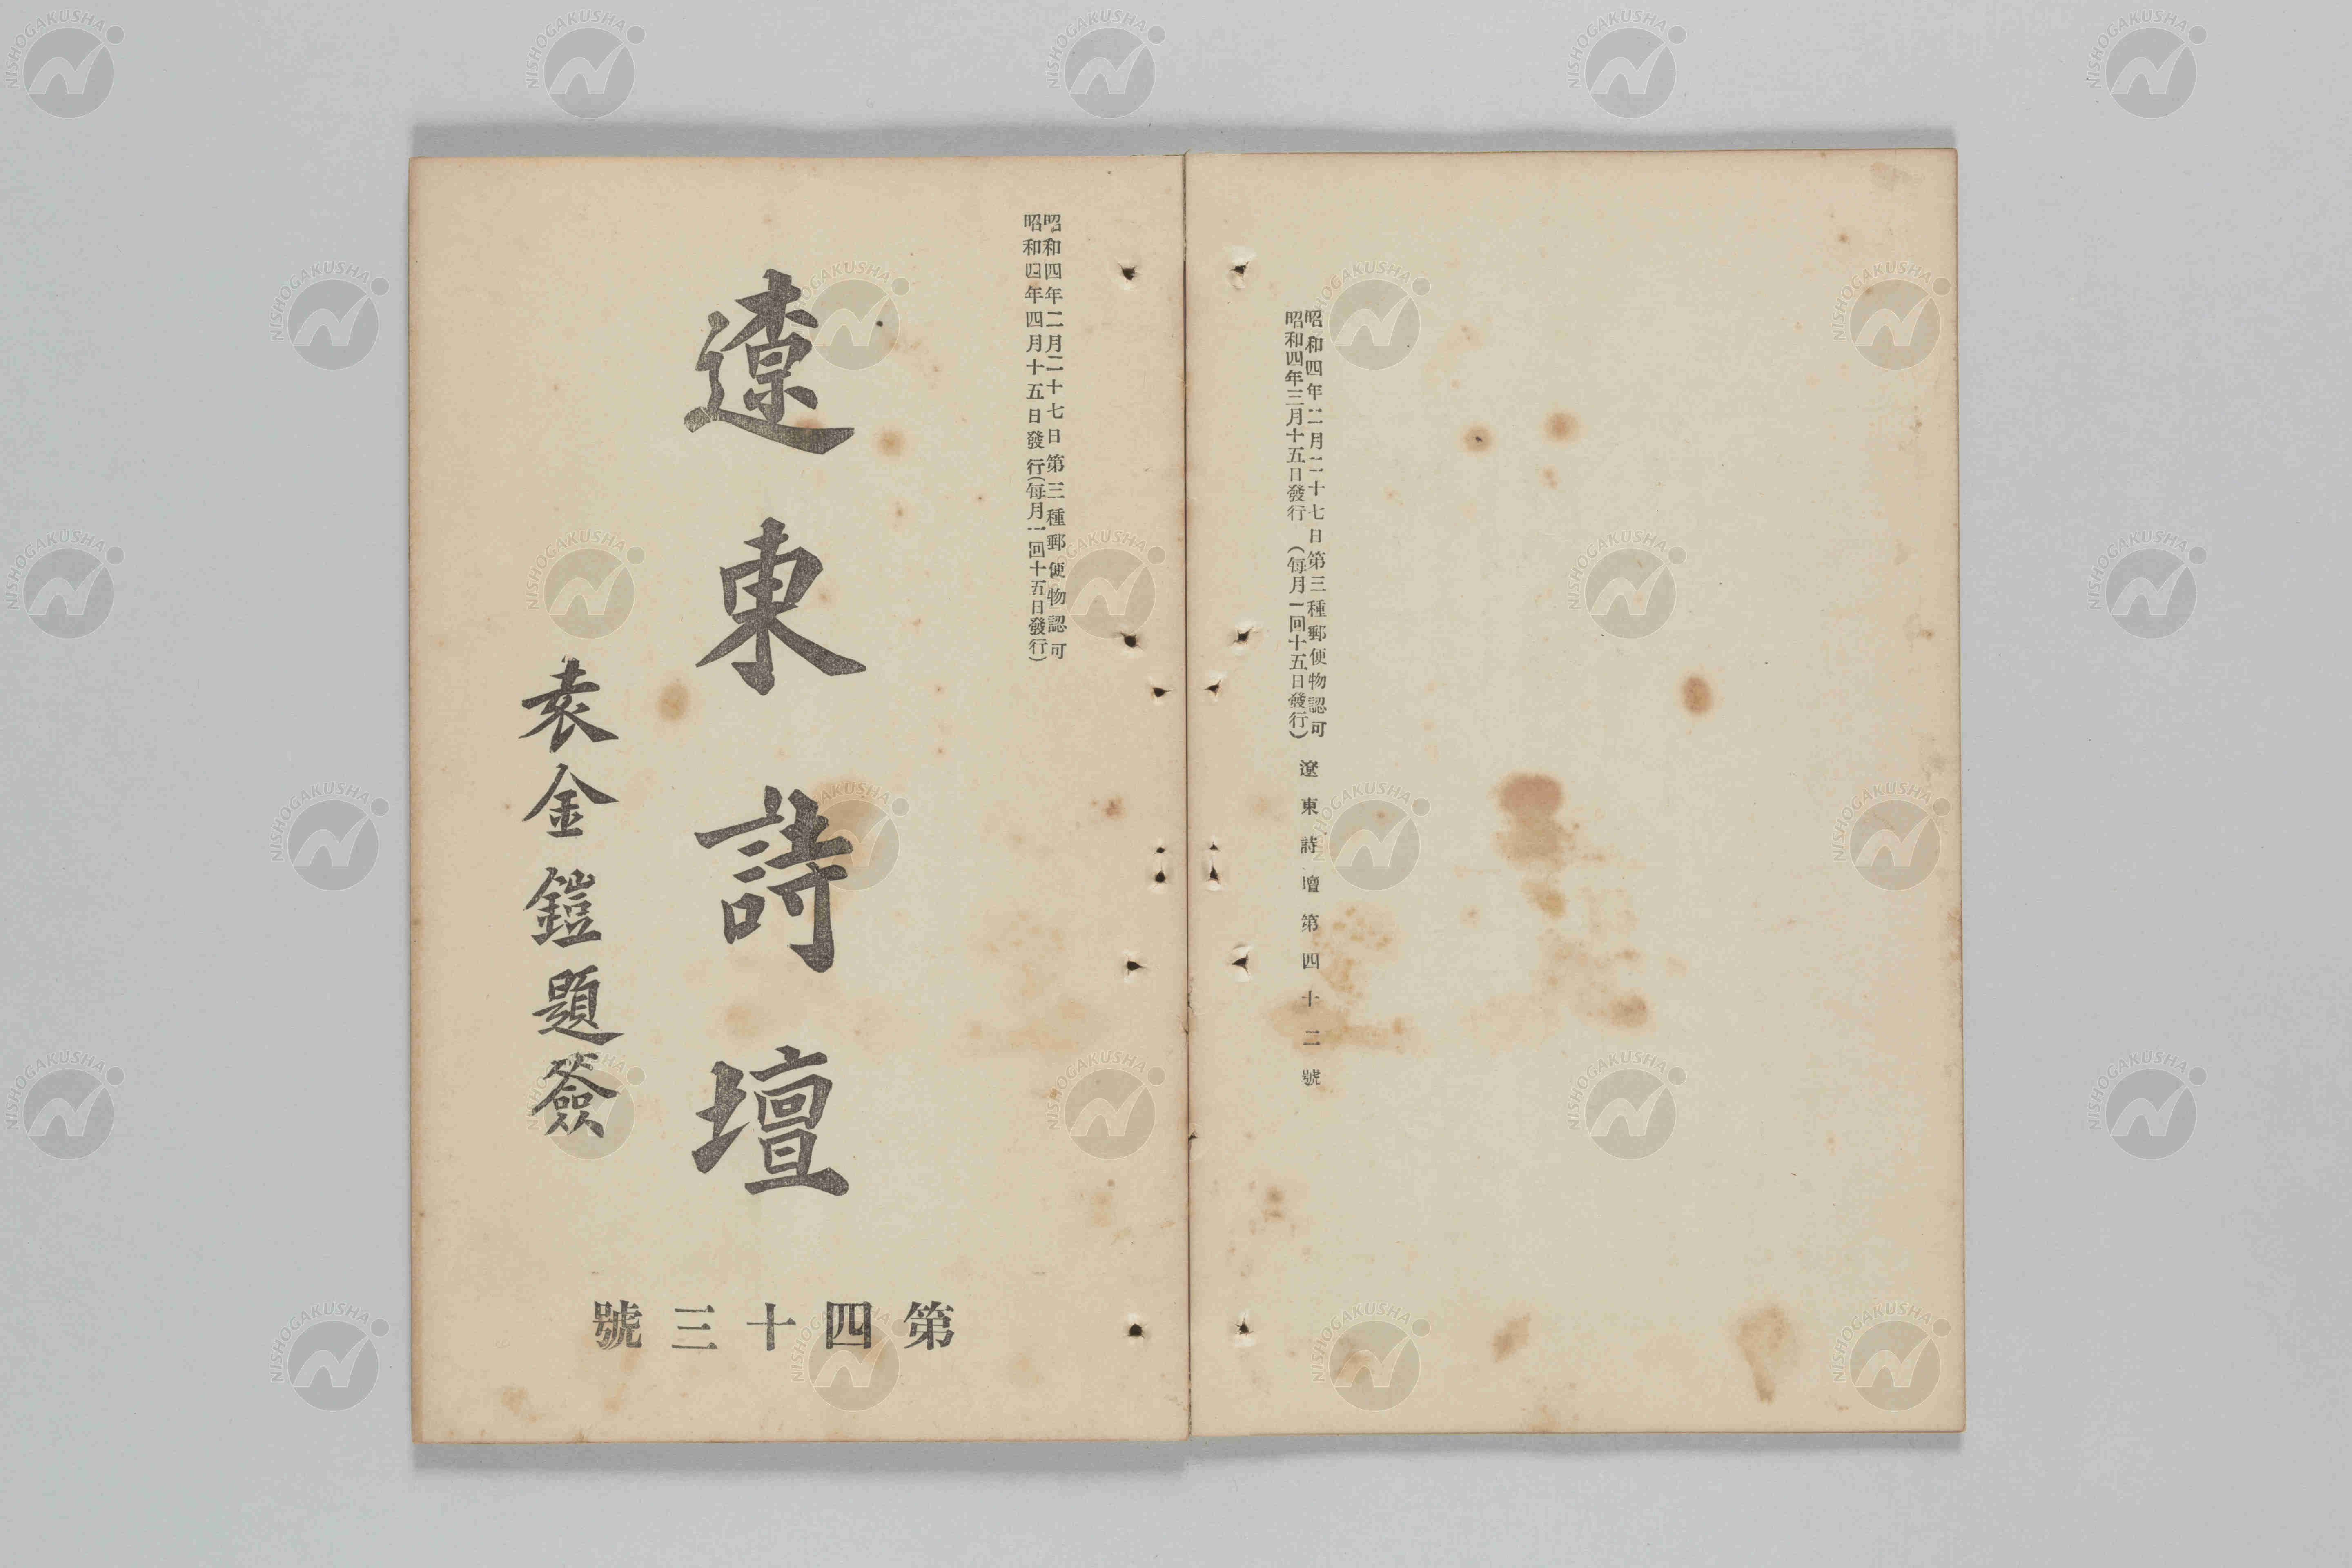 昭和四年二月二十七日第三種郵便物認可
昭和四年三月十五日發行（每月一回十五日發行）
遼東詩壇第四十二號
昭和四年二月二十七日第三種郵便物認可
昭和四年四月十五日發行（每月一回十五日發行）
遼東詩壇
袁金鎧題簽
第四十三號
NISHOGAKUSHA